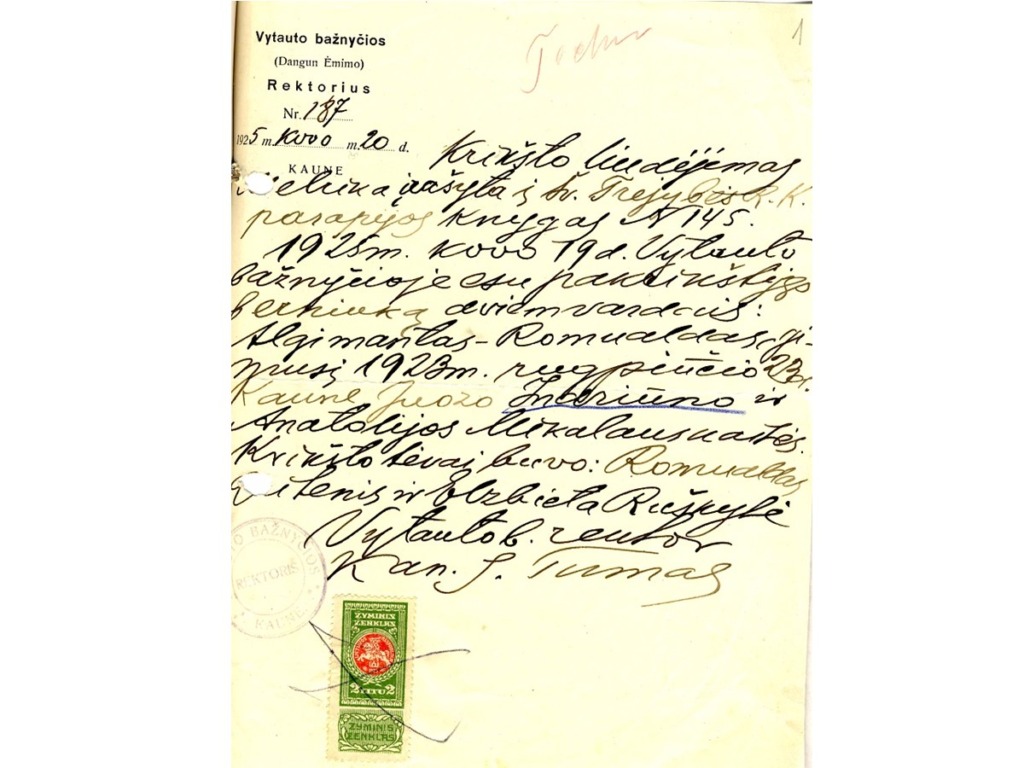 Vytauto bažnyčios
(Dangun Ėmimo)
Rektorius
Nr. 187
1925 m. Kovo m. 20 d.
KAUNE
1
Krikšto liudėjemas
Metrika įrašyta į Šv. Trejybės R. K.
parapijos knygas N 145.
1925 m. kovo 19 d. Vytauto
bažnyčioje esu pakrikštijęs
berniuką dviem vardais:
Algimantas-Romualdas, gi-
musį 1923 m. rugpiučio 23 d.
Kaune Juozo Indriūno ir
Anatolijos Mikalauskaitės.
Krikšto tėvai buvo: Romualdas
Vitenis ir Elzbieta Ruškytė
Vytauto b. rektor
Kan. J. Tumas
BAŽNYČIOS
REKTORIŠ
KAUNE
ŻYMINIS
ŻENKLAS
2 LITU 2
ŻYMINIS
ŻENKLAS